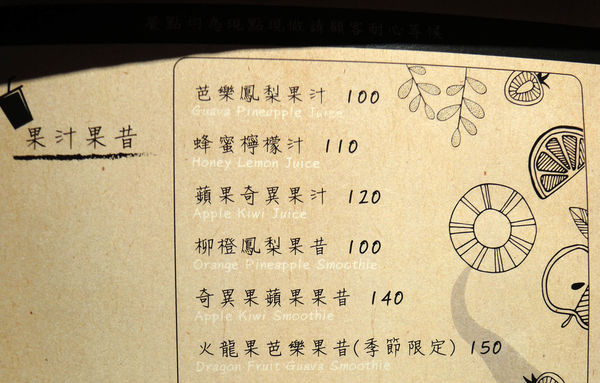 餐點均為現點現做請顧客耐心等候
果汁果昔
芭樂鳳梨果汁 100
Guava Pineapple Juice
蜂蜜檸檬汁 110
Honey Lemon Juice
蘋果奇異果汁 120
Apple Kiwi Juice
柳橙鳳梨果昔 100
Orange Pineapple Smoothie
奇異果蘋果果昔 140
Apple Kiwi Smoothie
火龍果芭樂果昔(季節限定) 150
Dragon Fruit Guava Smoothie